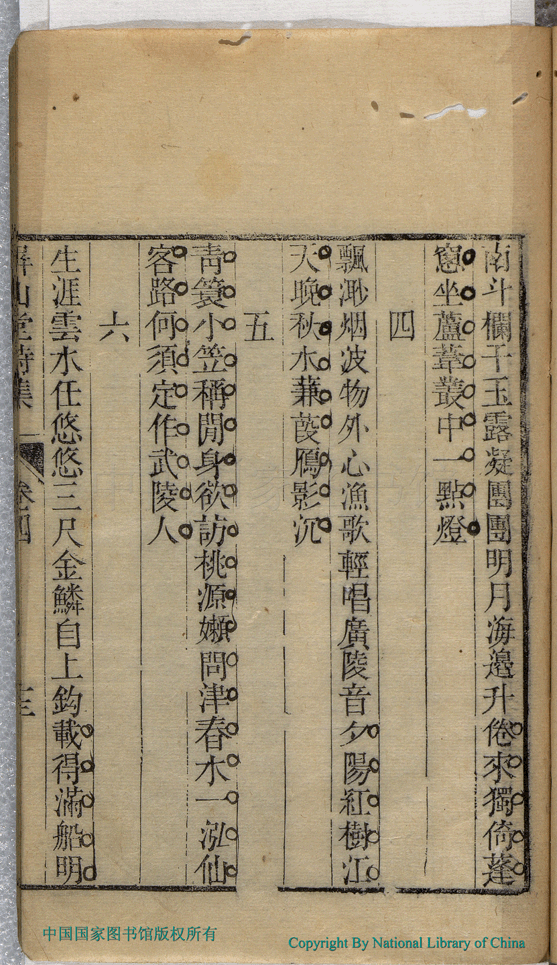 南斗欄干玉露凝團團明月海邊升倦來獨倚蓬
窻坐蘆葦叢中一點燈
四
飄渺烟波物外心漁歌輕唱廣陵音夕陽紅樹江
天晚秋水蒹葭鴈影沉
五
青簑小笠稱閒身欲訪桃源嬾問津春水一泓仙
客路何須定作武陵人
六
生涯雲水任悠悠三尺金鱗自上鈎載得滿船明
屏山堂詩集
卷四
十三
中国国家图书馆版权所有
Copyright By National Library of China